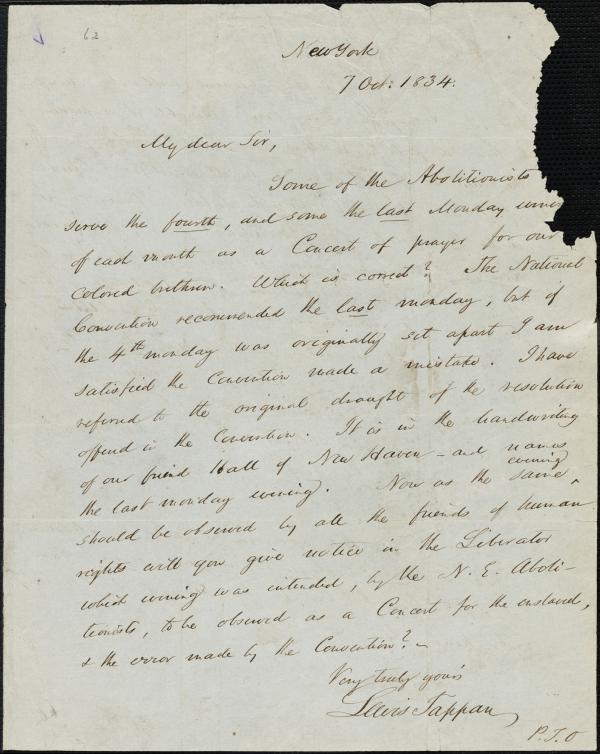 62
New York
7 Oct: 1834.
My dear Sir,
Some of the Abolitionists
serve the fourth, and some the last Monday
of each month as a Concert of prayer for our
colored brethren. Which is correct? The National
Convention recommended the last monday, but if
the 4th monday was originally set apart I am
satisfied the Convention made a mistake. I have
referred to the original draught of the resolution
offered in the Convention. It is in the handwriting
of our friend Hall of New Haven - and names
the last monday evening. Now as the same
evening
should be observed by all the friends of human
rights will you give notice in the Liberator
which evening was intended, by the N. E. Aboli-
tionists, to be observed as a Concert for the enslaved,
& the error made by the Convention? -
Very truly yours
Lewis Tappan
P.T.O